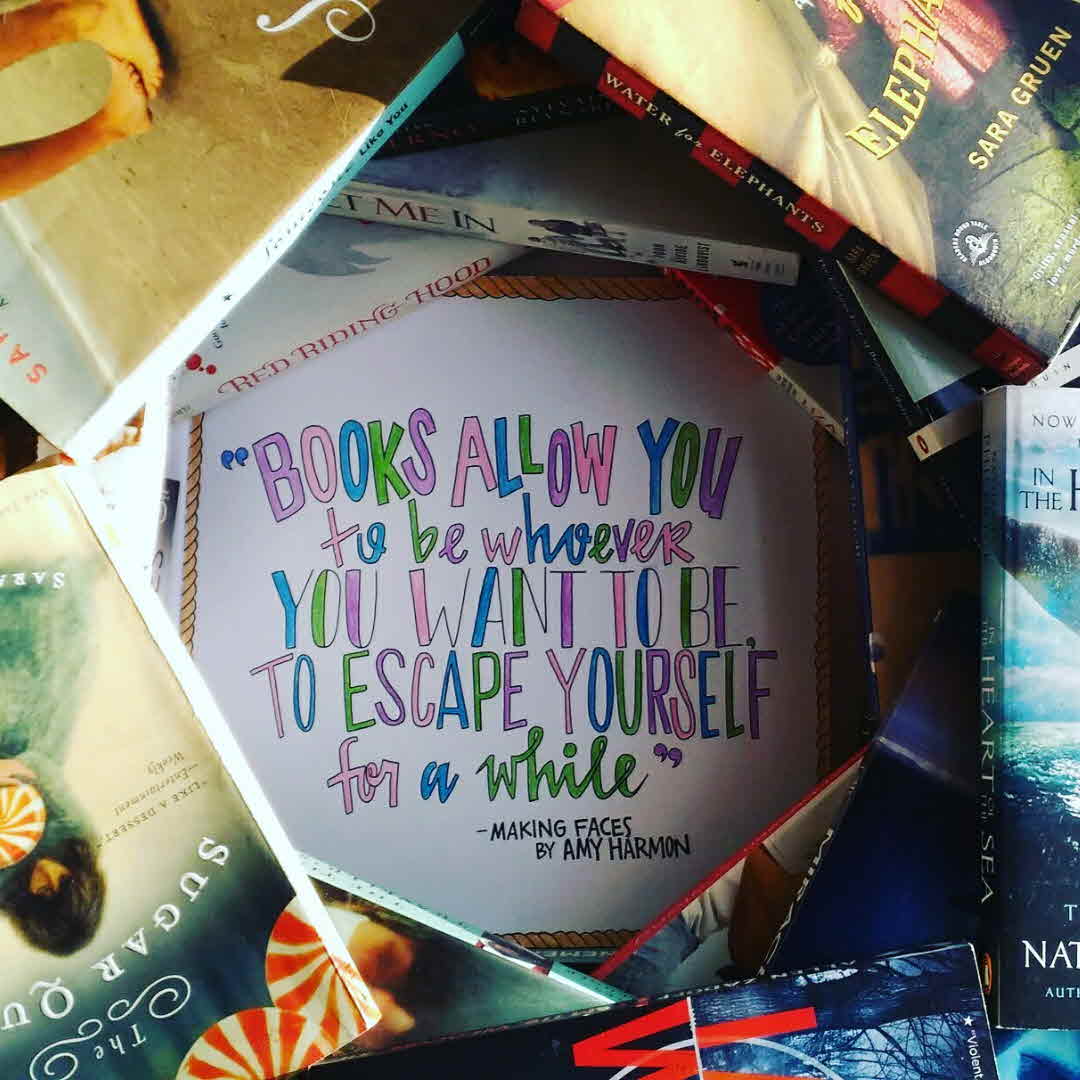 Like You
WATER for ELEPHANTS
SARA GRUEN
ELEPHA
SARA GRUEN
ET ME IN
RED RIDING HOOD
"BOOKS ALLOW YOU
to be whoever
YOU WANT TO BE,
TO ESCAPE YOURSELF
for a while"
-MAKING FACES
BY AMY HARMON
NOW
IN
THE H
IN THE HEART OF THE SEA
NAT
AUTH
SARA
"LIKE A DESSERT."
-Entertainment
Weekly
The
SUGAR QU
"Violent